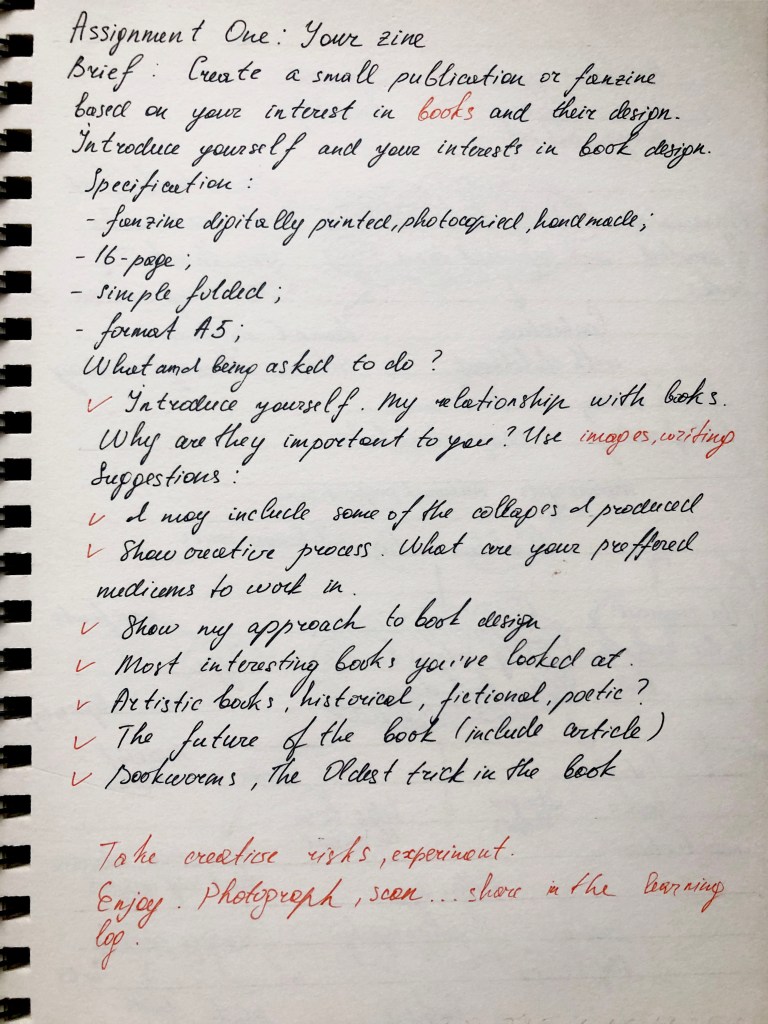 Assignment One: Your zine
Brief: Create a small publication or fanzine
based on your interest in books and their design.
Introduce yourself and your interests in book design.
Specification:
- fanzine digitally printed, photocopied, handmade;
- 16-page;
- simple folded;
- format A5;
What am I being asked to do?
✓ Introduce yourself. My relationship with books.
Why are they important to you? Use images, writing
Suggestions:
✓ I may include some of the collages I produced
✓ Show creative process. What are your preffered
mediums to work in.
✓ Show my approach to book design
✓ Most interesting books you've looked at.
✓ Artistic books, historical, fictional, poetic?
✓ The future of the book (include article)
✓ Bookworms, The Oldest trick in the book
Take creative risks, experiment.
Enjoy. Photograph, scan... share in the learning
log.